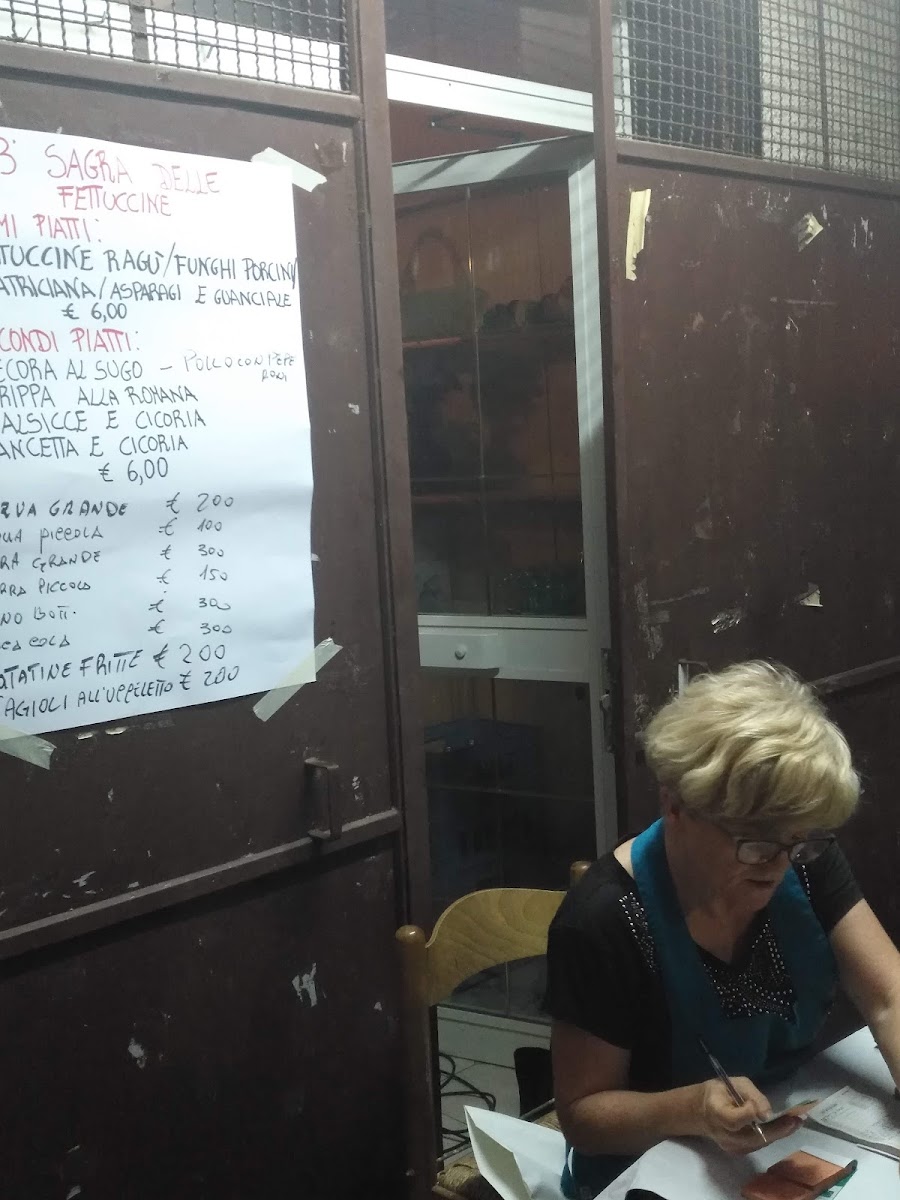 3° SAGRA DELLE
FETTUCCINE
MI PIATTI:
TUCCINE RAGÙ/FUNGHI PORCINI/
ATRICIANA/ASPARAGI E GUANCIALE
€ 6,00
CONDI PIATTI:
ECORA AL SUGO – POLLO CON PEPE
RONI
RIPPA ALLA ROMANA
ALSICCE E CICORIA
ANCETTA E CICORIA
€ 6,00
QUA GRANDE € 200
QUA PICCOLA € 100
RRA GRANDE € 300
RRA PICCOLA € 150
NO BOTT. € 300
CA COLA € 300
ATATINE FRITTE € 200
FAGIOLI ALL'UCCELETTO € 200